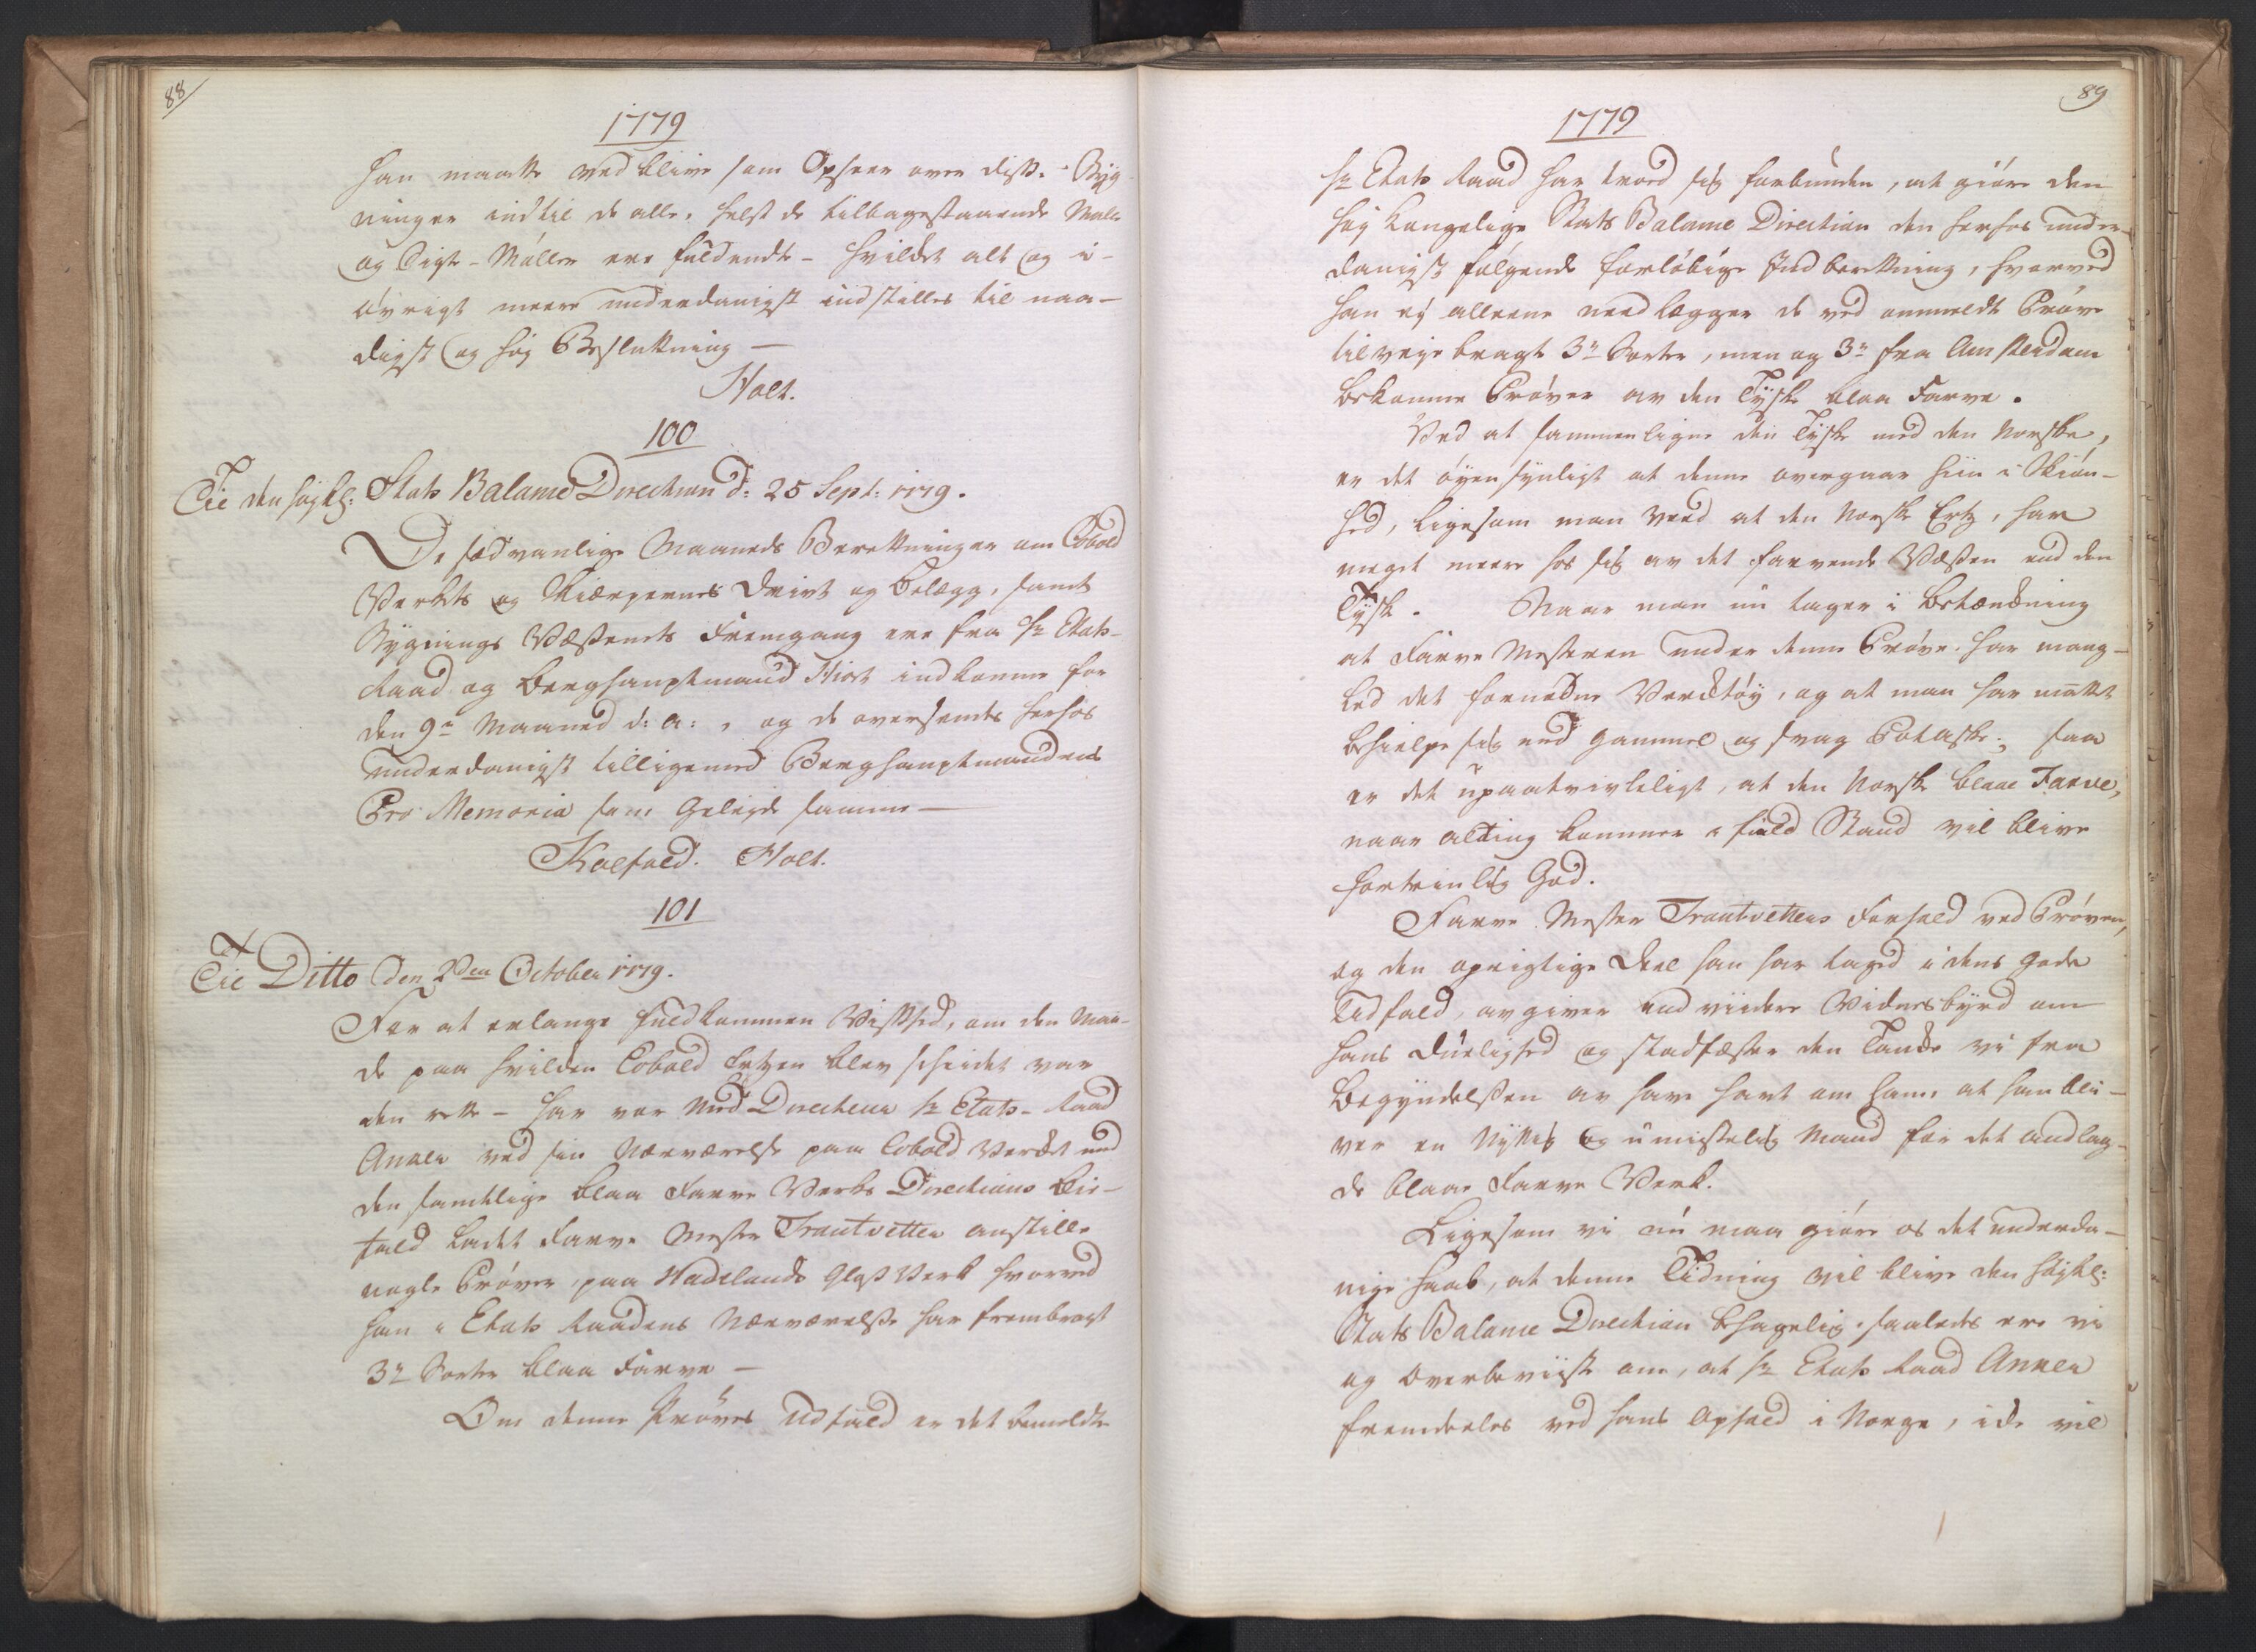 88
1779
han maatte ved blive som Opseer over disse Byg-
ninger indtil de alle, helst de tilbagestaaende Male
og Sigte-Møller ere fuldendte - hvilket alt og i-
øvrigt meere underdanigst indstilles til naa-
digst og høy Beslutning —
Holt.
100
Til den høykl: Stats Balance Direction d: 25 Sept: 1779.
De sædvanlige Maaneds Beretninger om Cobold
Verkets og Skiærpernes Drivt og Belæg, samt
Bygnings Væssenets Fremgang ere fra Hr Etats-
Raad og Berghauptmand Hiort indkomne for
den 9de Maaned d: a: , og de oversendes herhos
underdanigst tilligemed Berghauptmandens
Pro Memoria som geleyde samme —
Kolfald. Holt.
101
Til Ditto den 2den October 1779.
For at erlange fuldkommen Vished, om den Maa-
de paa hvilken Cobold Ertzen blev scheidet var
den rette - har vor Med Directeur Hr Etats-Raad
Anker ved sin Nærværelse paa Cobold Verket med
den samtlige blaa Farve Verks Directions Bie-
fald ladet Farve Mester Trautvetter anstille
nogle Prøver, paa Hadelands Glas Verk hvorved
han i Etats Raadens Nærværelse har frembragt
3de Sorter blaa Farve —
Om denne Prøves Udfald er det bemeldte
89
1779
Hr Etats Raad har troed sig forbunden, at giøre den
høy Kongelige Stats Balance Direction den herhos under-
danigst følgende forløbige Indberetning, hvorved
han ej alleene need lægger de ved anmeldte Prøve
tilveyebragte 3de Sorter, men og 3de fra Amsterdam
bekomne Prøver av den Tyske blaa Farve.
Ved at sammenligne den Tyske med den Norske,
er det øyensynligt at denne overgaar hiin i Skiøn-
hed, ligesom man veed at den Norske Ertz, har
meget meere hos sig av det farvende Væssen end den
Tyske. Naar man nu tager i Betænkning
at Farve Mesteren under denne Prøve, har mang-
led det fornødne Verktøy, og at man har mottet
behielpe sig med gammel og svag Potaske; saa
er det upaatvivleligt, at den Norske blaae Farve,
naar alting kommer i fuld Stand vil blive
fortrinlig God.
Farve Mester Trautvetters Forhold ved Prøven,
og den oprigtige Deel han har taged i dens gode
Udfald, avgiver end viidere Vidnesbyrd om
hans Duelighed og stadfæster den Tanke vi fra
Begyndelsen av have havt om ham, at han bli-
ver en Nyttig og umistelig Mand for det anlag-
de blaae Farve Verk.
Ligesom vi nu maa giøre os det underda-
nige Haab, at denne Tidning vil blive den høykl:
Stats Balance Direction behagelig, saaledes ere vi
og overbeviiste om, at Hr Etats Raad Anker
fremdeeles ved hans Ophold i Norge, ide vil